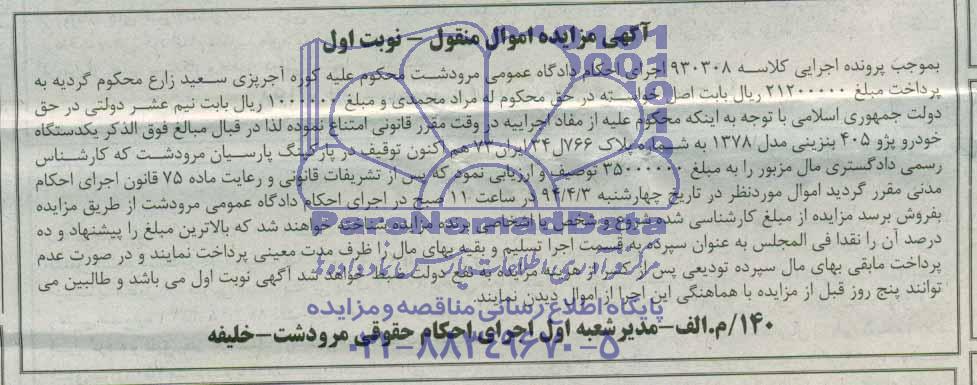 آگهی مزایده اموال منقول – نوبت اول
بموجب پرونده اجرایی کلاسه ۹۳۰۳۰۸ اجرای احکام دادگاه عمومی مرودشت محکوم علیه کوره آجرپزی سعید زارع محکوم گردیه به
پرداخت مبلغ ۲۱۲۰۰۰۰۰ ریال بابت اصل خواسته در حق محکوم له مراد محمدی و مبلغ ۱۰۰۰۰۰۰ ریال بابت نیم عشر دولتی در حق
دولت جمهوری اسلامی با توجه به اینکه محکوم علیه از مفاد اجراییه در وقت مقرر قانونی امتناع نموده لذا در قبال مبالغ فوق الذکر یکدستگاه
خودرو پژو ۴۰۵ بنزینی مدل ۱۳۷۸ به شماره پلاک ۷۶۶ل۳۴ ایران۷۳ هم اکنون توقیف در پارکینگ پارسیان مرودشت که کارشناس
رسمی دادگستری مال مزبور را به مبلغ ۳۵۰۰۰۰۰۰ توصیف و ارزیابی نمود که پس از تشریفات قانونی و رعایت ماده ۷۵ قانون اجرای احکام
مدنی مقرر گردید اموال موردنظر در تاریخ چهارشنبه ۹۴/۴/۳ در ساعت ۱۱ صبح در اجرای احکام دادگاه عمومی مرودشت از طریق مزایده
بفروش برسد مزایده از مبلغ کارشناسی شده شروع و شخص یا اشخاصی برنده مزایده شناخته خواهند شد که بالاترین مبلغ را پیشنهاد و ده
درصد آن را نقدا فی المجلس به عنوان سپرده به قسمت اجرا تسلیم و بقیه بهای مال را ظرف مدت معینی پرداخت نمایند و در صورت عدم
پرداخت مابقی بهای مال سپرده تودیعی پس از کسر از هزینه مزایده به نفع دولت ضبط خواهد شد آگهی نوبت اول می باشد و طالبین می
توانند پنج روز قبل از مزایده با هماهنگی این اجرا از اموال دیدن نمایند.
پایگاه اطلاع رسانی مناقصه و مزایده
۱۴۰/م.الف–مدیر شعبه اول اجرای احکام حقوقی مرودشت–خلیفه
۰۲۱–۸۸۳۴۹۶۷۰–۵
ParsNamadData